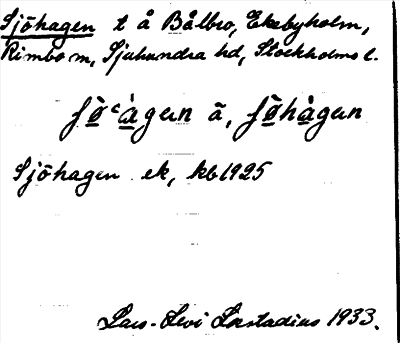 Sjöhagen t å Bålbro, Ekebyholm,
Rimbo sn, Sjuhundra hd, Stockholms l.
ʃö̀‘àgen ã, ʃö̀hàgen
Sjöhagen ek, kb 1925
Lars-Levi Læstadius 1933.